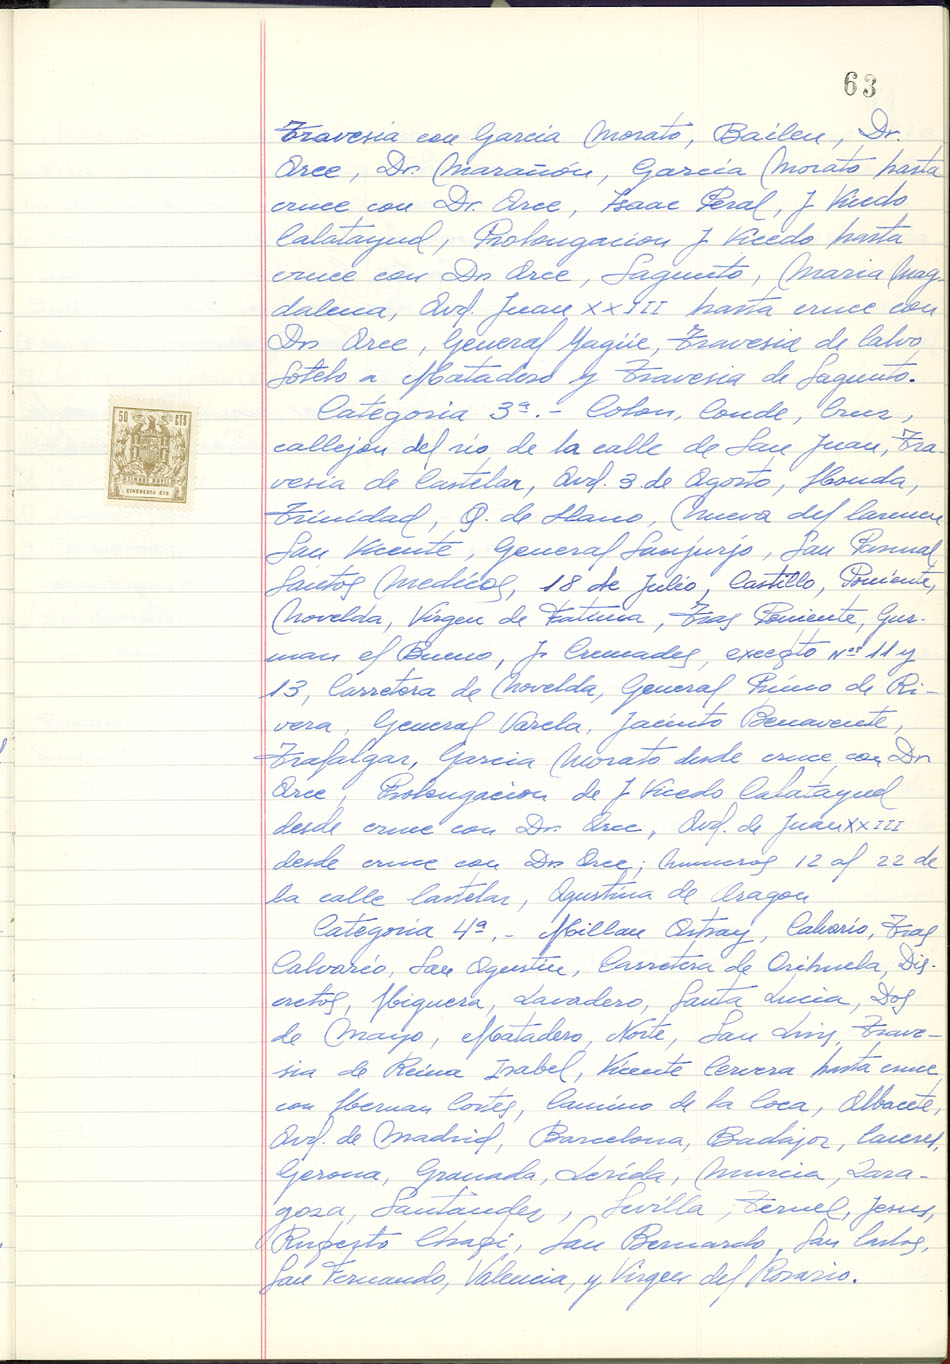 63
Travesia con Garcia Morato, Bailen, Dr.
Orce, Dr. Marañón, García Morato hasta
cruce con Dr. Orce, Isaac Peral, J. Vicedo
Calatayud, Prolongacion J. Vicedo hasta
cruce con Dr. Orce, Sagunto, Maria Mag-
dalena, Avd. Juan XXIII hasta cruce con
Dr. Orce, General Yagüe, Travesia de Calvo
Sotelo a Matadero y Travesia de Sagunto.
Categoria 3ª.- Colon, Conde, Cruz,
callejon del rio, de la calle de San Juan, Tra-
vesia de Castelar, Avd. 3 de Agosto, Honda,
Trinidad, Q. de Llano, Nueva del Carmen
San Vicente, General Sanjurjo, San Pascual,
Santos Medicos, 18 de Julio, Castillo, Poniente,
Novelda, Virgen de Fatima, Tras Poniente, Guz-
man el Bueno, J. Cremades, excepto nos 11 y
13, Carretera de Novelda, General Primo de Ri-
vera, General Varela, Jacinto Benavente,
Trafalgar, Garcia Morato desde cruce con Dr.
Orce, Prolongacion de J. Vicedo Calatayud
desde cruce con Dr. Orce, Avd. de Juan XXIII
desde cruce con Dr. Orce; numeros 12 al 22 de
la calle Castelar, Agustina de Aragon
Categoria 4ª.- Millan Astray, Calvario, Tras
Calvario, San Agustin, Carretera de Orihuela, Dis-
cretos, Higuera, Lavadero, Santa Lucia, Dos
de Mayo, Matadero, Norte, San Luis, Trave-
sia de Reina Isabel, Vicente Cervera hasta cruce
con Hernan Cortes, Camino de la Coca, Albacete,
Avd. de Madrid, Barcelona, Badajoz, Caceres,
Gerona, Granada, Lerida, Murcia, Zara-
goza, Santander, Sevilla, Teruel, Jesus,
Ruperto Chapi, San Bernardo, San Carlos,
San Fernando, Valencia, y Virgen del Rosario.
50 CTS
TIMBRE MOVIL
CINCUENTA CTS